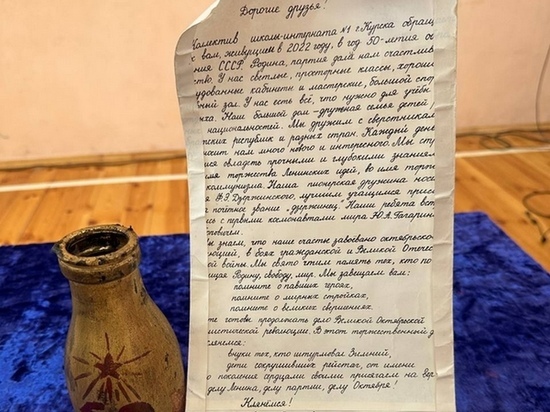 Дорогие друзья!
Коллектив школы-интерната №1 г. Курска обращ
к вам, живущим в 2022 году, в год 50-летия об
ния СССР. Родина, партия дала нам счастлив
ство. У нас светлые, просторные классы, хорошо
удованные кабинеты и мастерские, большой спор
ный зал. У нас есть всё, что нужно для учёбы
ха. Наш большой дом - дружная семья детей,
национальностей. Мы дружим с сверстникам
тских республик и разных стран. Каждый день
носит нам много нового и интересного. Мы ст
мся овладеть прочными и глубокими знаниям
имя торжества Ленинских идей, во имя торж
коммунизма. Наша пионерская дружина нос
Ф.Э. Дзержинского, лучшим учащимся присв
почетное звание "дзержинец". Наши ребята вст
сь с первыми космонавтами мира Ю.А. Гагарин
овичем.
ы знаем, что наше счастье завоёвано октябрьско
юцией, в боях гражданской и Великой Отечес
ой войны. Мы свято чтим память тех, кто по
щая Родину, свободу, мир. Мы завещаем вам:
помните о павших героях,
помните о мирных стройках,
помните о великих свершениях.
те готовы продолжать дело Великой Октябрьской
листической революции. В этот торжественный д
лянемся:
внуки тех, кто штурмовал Зимний,
дети сокрушивших рейхстаг, от имени
о поколения сердцами своими присягаем на вер
делу Ленина, делу партии, делу Октября!
Клянёмся!